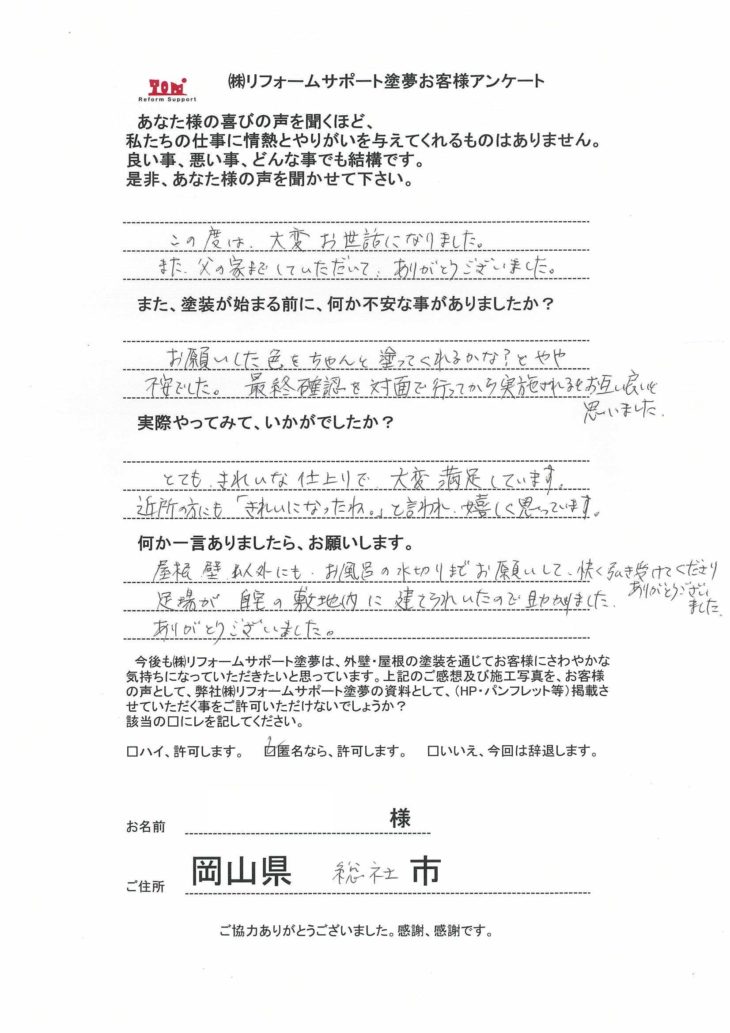 TOM
Reform Support
㈱リフォームサポート塗夢お客様アンケート
あなた様の喜びの声を聞くほど、
私たちの仕事に情熱とやりがいを与えてくれるものはありません。
良い事、悪い事、どんな事でも結構です。
是非、あなた様の声を聞かせて下さい。
この度は、大変お世話になりました。
また、父の家までしていただいて、ありがとうございました。
また、塗装が始まる前に、何か不安な事がありましたか？
お願いした色をちゃんと塗ってくれるかな？とやや
不安でした。最終確認を対面で行ってから実施されるとお互い良いと
思いました。
実際やってみて、いかがでしたか？
とても、きれいな仕上りで、大変満足しています。
近所の方にも「きれいになったね。」と言われ、嬉しく思っています。
何か一言ありましたら、お願いします。
屋根 壁 以外にも、お風呂の水切りまでお願いして、快く引き受けてくださり
ありがとうござい
ました。
足場が 自宅の敷地内に 建てられいたので助かりました。
ありがとうございました。
今後も㈱リフォームサポート塗夢は、外壁・屋根の塗装を通じてお客様にさわやかな
気持ちになっていただきたいと思っています。上記のご感想及び施工写真を、お客様
の声として、弊社㈱リフォームサポート塗夢の資料として、（HP・パンフレット等）掲載さ
せていただく事をご許可いただけないでしょうか？
該当の□にレを記してください。
□ハイ、許可します。 ☑匿名なら、許可します。 □いいえ、今回は辞退します。
お名前 様
ご住所 岡山県 総社 市
ご協力ありがとうございました。感謝、感謝です。